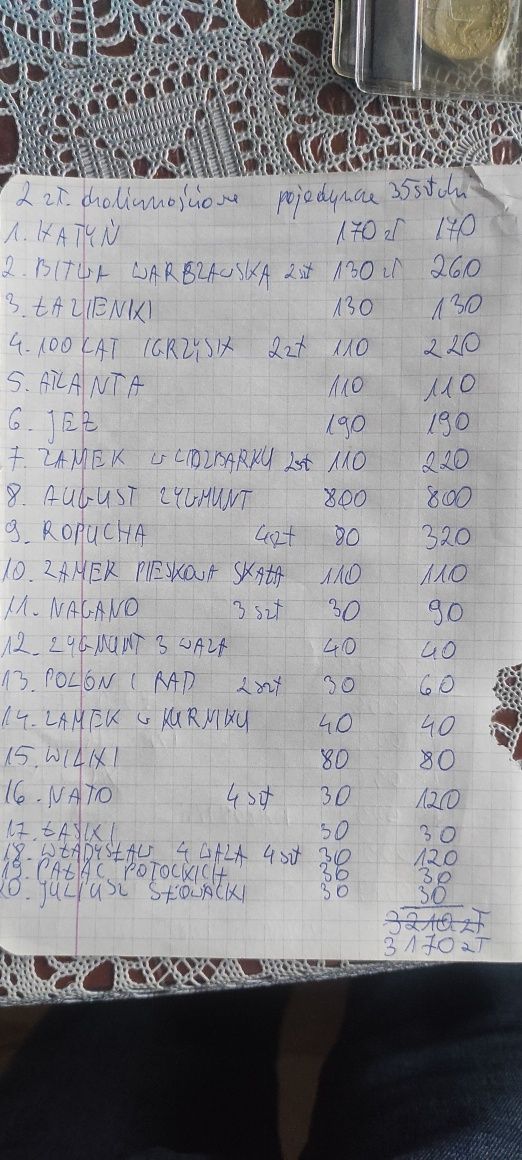 2 zł. okolicznościowe pojedyncze 35 sztuk
1. KATYŃ 170 zł 170
2. BITWA WARSZAWSKA 2szt 130 zł 260
3. ŁAZIENKI 130 130
4. 100 LAT IGRZYSK 2szt 110 220
5. ATLANTA 110 110
6. JEŻ 190 190
7. ZAMEK W LIDZBARKU 2szt 110 220
8. AUGUST ZYGMUNT 800 800
9. ROPUCHA 4szt 80 320
10. ZAMEK PIESKOWA SKAŁA 110 110
11. NAGANO 3 szt 30 90
12. ZYGMUNT 3 WAZA 40 40
13. POLON I RAD 2szt 30 60
14. ZAMEK W KURNIKU 40 40
15. WILKI 80 80
16. NATO 4szt 30 120
17. ŁASKI 30 30
18. WŁADYSŁAW 4 WAZA 4szt 30 120
19. PAŁAC POTOCKICH 30 30
20. JULIUSZ SŁOWACKI 30 30
3210 zł
3170 zł